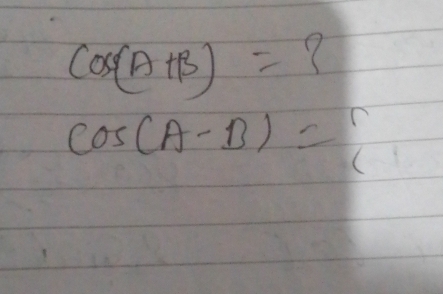 Cos(A+B) = ?
Cos(A-B) = ?